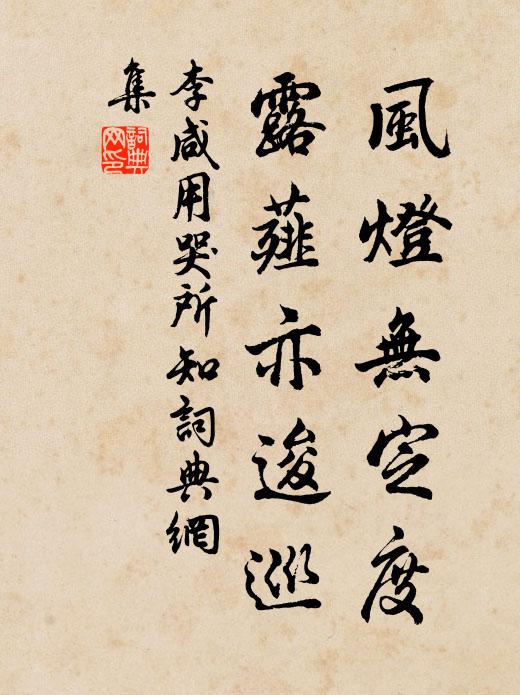 風燈無定度
露薤亦逡巡
李咸用哭所知詞典網
集
詞典網印